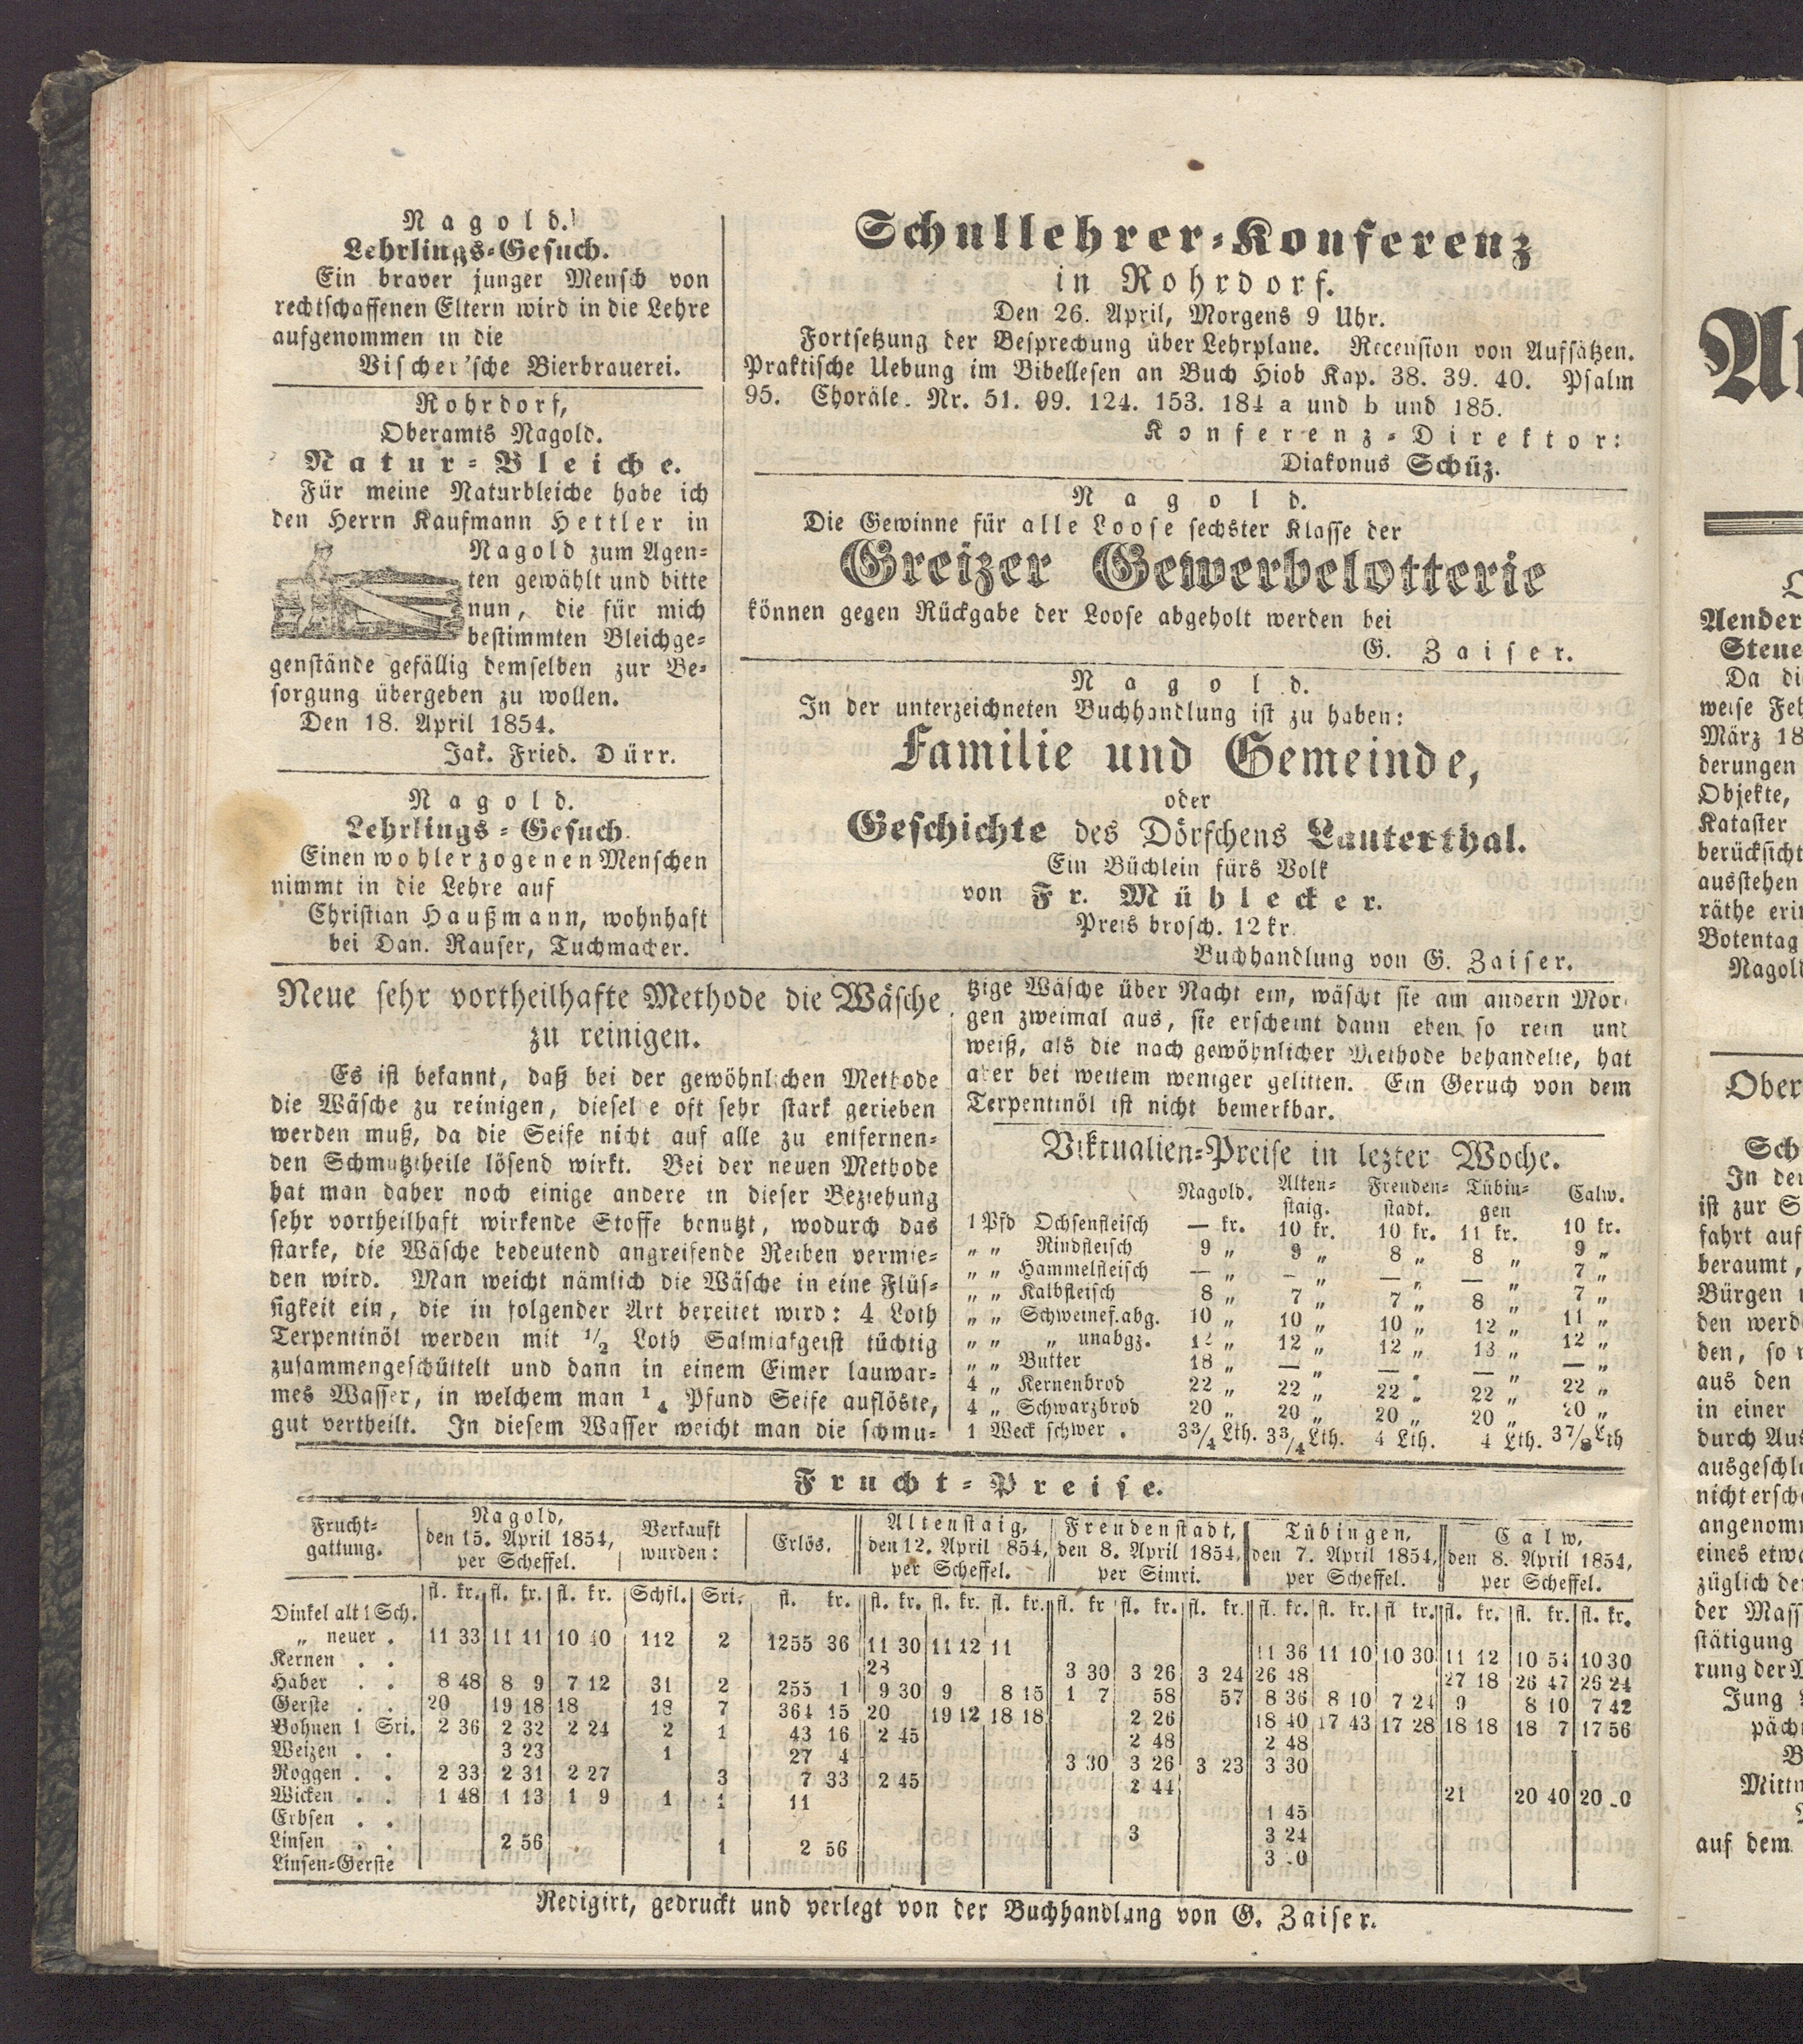 Nagold.
Lehrlings-Gesuch.
Ein braver junger Mensch von
rechtschaffenen Eltern wird in die Lehre
aufgenommen in die
Vischer'sche Bierbrauerei.
Rohrdorf,
Oberamts Nagold.
Natur-Bleiche.
Für meine Naturbleiche habe ich
den Herrn Kaufmann Hettler in
Nagold zum Agen-
ten gewählt und bitte
nun, die für mich
bestimmten Bleichge-
genstände gefällig demselben zur Be-
sorgung übergeben zu wollen.
Den 18. April 1854.
Jak. Fried. Dürr.
Nagold.
Lehrlings-Gesuch.
Einen wohlerzogenen Menschen
nimmt in die Lehre auf
Christian Haußmann, wohnhaft
bei Dan. Rauser, Tuchmacher.
Schullehrer-Konferenz
in Rohrdorf.
Den 26. April, Morgens 9 Uhr.
Fortsetzung der Besprechung über Lehrplane. Recension von Aufsätzen.
Praktische Uebung im Bibellesen an Buch Hiob Kap. 38. 39. 40. Psalm
95. Choräle. Nr. 51. 09. 124. 153. 184 a und b und 185.
Konferenz-Direktor:
Diakonus Schüz.
Nagold.
Die Gewinne für alle Loose sechster Klasse der
Greizer Gewerbelotterie
können gegen Rückgabe der Loose abgeholt werden bei
G. Zaiser.
Nagold.
In der unterzeichneten Buchhandlung ist zu haben:
Familie und Gemeinde,
oder
Geschichte des Dörfchens Lauterthal.
Ein Büchlein fürs Volk
von Fr. Mühlecker.
Preis brosch. 12 kr.
Buchhandlung von G. Zaiser.
Neue sehr vortheilhafte Methode die Wäsche
zu reinigen.
Es ist bekannt, daß bei der gewöhnlichen Methode
die Wäsche zu reinigen, dieselbe oft sehr stark gerieben
werden muß, da die Seife nicht auf alle zu entfernen-
den Schmutztheile lösend wirkt. Bei der neuen Methode
hat man daher noch einige andere in dieser Beziehung
sehr vortheilhaft wirkende Stoffe benutzt, wodurch das
starke, die Wäsche bedeutend angreifende Reiben vermie-
den wird. Man weicht nämlich die Wäsche in eine Flüs-
sigkeit ein, die in folgender Art bereitet wird: 4 Loth
Terpentinöl werden mit 1/2 Loth Salmiakgeist tüchtig
zusammengeschüttelt und dann in einem Eimer lauwar-
mes Wasser, in welchem man 1/4 Pfund Seife auflöste,
gut vertheilt. In diesem Wasser weicht man die schmu-
tzige Wäsche über Nacht ein, wäscht sie am andern Mor-
gen zweimal aus, sie erscheint dann eben so rein und
weiß, als die nach gewöhnlicher Methode behandelte, hat
aber bei weitem weniger gelitten. Ein Geruch von dem
Terpentinöl ist nicht bemerkbar.
Viktualien-Preise in lezter Woche.
Nagold. Alten-staig. Freuden-stadt. Tübin-gen Calw.
1 Pfd Ochsenfleisch — kr. 10 kr. 10 kr. 11 kr. 10 kr.
„ „ Rindfleisch 9 „ 9 „ 8 „ 8 „ 9 „
„ „ Hammelfleisch — „ — „ — „ — „ 7 „
„ „ Kalbfleisch 8 „ 7 „ 7 „ 8 „ 7 „
„ „ Schweinef. abg. 10 „ 10 „ 10 „ 12 „ 11 „
„ „ „ unabgz. 12 „ 12 „ 12 „ 13 „ 12 „
„ „ Butter 18 „ — „ — „ — „ — „
4 „ Kernenbrod 22 „ 22 „ 22 „ 22 „ 22 „
4 „ Schwarzbrod 20 „ 20 „ 20 „ 20 „ 20 „
1 Weck schwer . 3 3/4 Lth. 3 3/4 Lth. 4 Lth. 4 Lth. 3 7/8 Lth
Frucht-Preise.
Frucht-gattung. Nagold, den 15. April 1854, per Scheffel. Verkauft wurden: Erlös. Altenstaig, den 12. April 854, per Scheffel. Freudenstadt, den 8. April 1854, per Simri. Tübingen, den 7. April 1854, per Scheffel. Calw, den 8. April 1854, per Scheffel.
fl. kr. fl. kr. fl. kr. Schfl. Sri. fl. kr. fl. kr. fl. kr. fl. kr. fl. kr fl. kr. fl. kr. fl. kr. fl. kr. fl kr. fl. kr. fl. kr. fl. kr.
Dinkel alt 1 Sch.
„ neuer . 11 33 11 11 10 40 112 2 1255 36 11 30 11 12 11 11 36 11 10 10 30 11 12 10 54 10 30
Kernen . . 28 3 30 3 26 3 24 26 48 27 18 26 47 26 24
Haber . . 8 48 8 9 7 12 31 2 255 1 9 30 9 8 15 1 7 58 57 8 36 8 10 7 24 9 8 10 7 42
Gerste . . 20 19 18 18 18 7 364 15 20 19 12 18 18 2 26 18 40 17 43 17 28 18 18 18 7 17 56
Bohnen 1 Sri. 2 36 2 32 2 24 2 1 43 16 2 45 2 48 2 48
Weizen . . 3 23 1 27 4 3 30 3 26 3 23 3 30
Roggen . . 2 33 2 31 2 27 3 7 33 2 45 2 44 21 20 40 20
Wicken . . 1 48 1 13 1 9 1 1 11 1 45
Erbsen . . 3 3 24
Linsen . . 2 56 1 2 56 3
Linsen-Gerste
Redigirt, gedruckt und verlegt von der Buchhandlung von G. Zaiser.
Aender
Steue
Da di
März 18
derungen
Objekte,
Kataster
berücksicht
ausstehen
räthe erin
Botentag
Nagold
Ober
Sch
In der
ist zur S
fahrt auf
beraumt,
Bürgen
den werd
den, so
aus den
in einer
durch Aus
ausgeschl
nicht ersch
angenom
eines etwa
züglich de
der Mass
stätigung
rung der M
Jung
päch
B
Mittn
auf dem